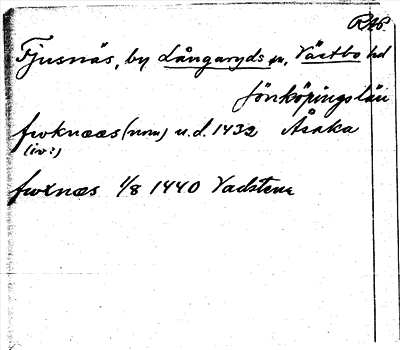 RAP.
Fjusnäs, by Långaryds sn, Västbo hd
Jönköpings län
fwknææs (nom) u.d. 1432 Åsaka
(iv:)
fwxnæs 1/8 1440 Vadstena